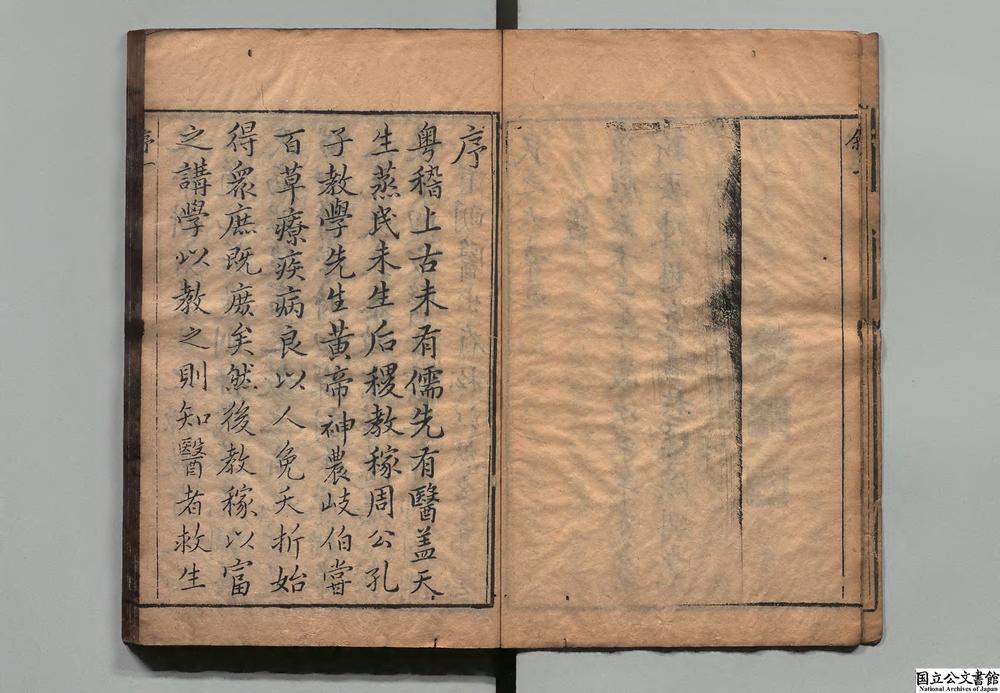 序
粤稽上古未有儒先有醫盖天
生蒸民未生后稷教稼周公孔
子教學先生黄帝神農岐伯嘗
百草療疾病良以人免夭折始
得眾庶既庶矣然後教稼以富
之講學以教之則知醫者救生
序一
国立公文書館
National Archives of Japan